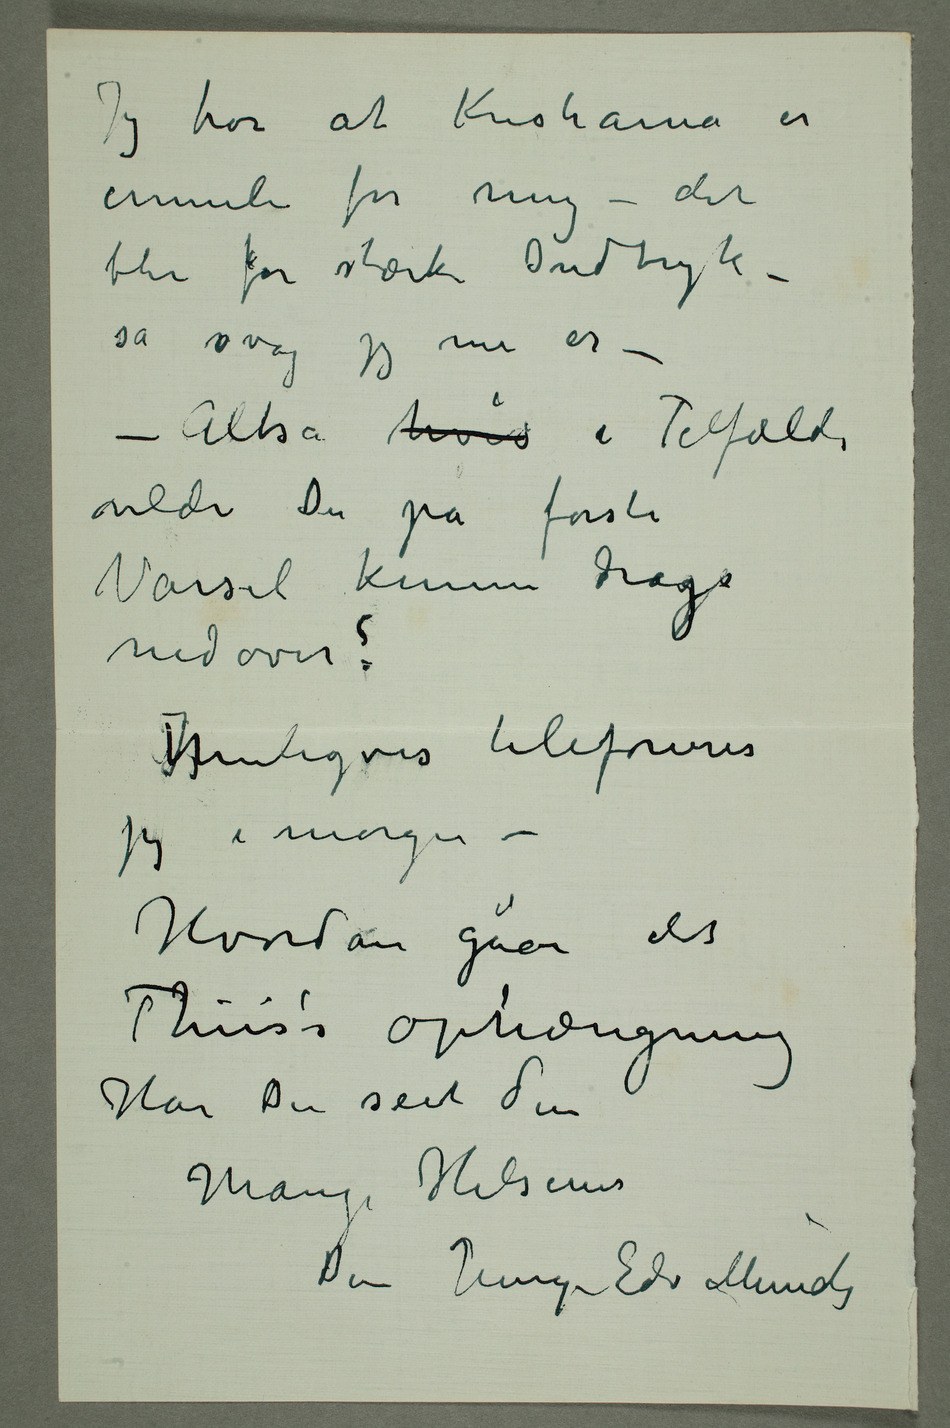 Jeg tror at Kristiania er
immule for mig – det
blir for stærke Indtryk –
sa svag jeg nu er –
– Altsa hvis i Tilfælde
vilde Du pa første
Varsel kunne drage
nedover?
telefoneres
jeg i morgen –
Hvordan gåar det
Thiis's ophængning
Har Du seet den
Mange Hilsener
Din Edv Munch